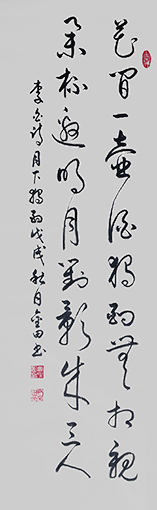 花間一壺酒獨酌無相親
舉杯邀明月對影成三人
李白詩月下獨酌戊戌秋月金田書